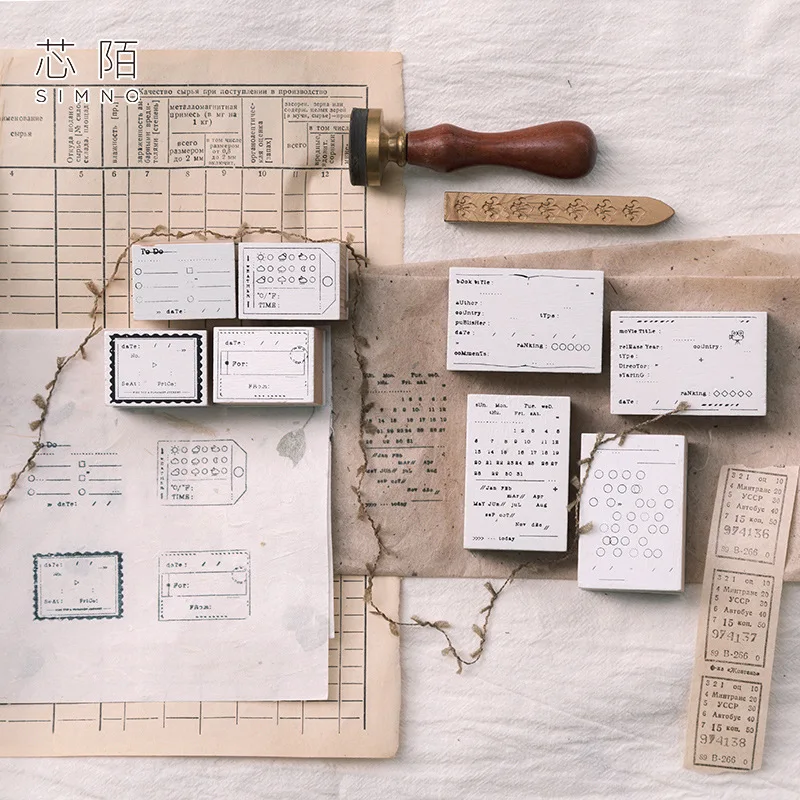 芯陌
SIMNO
Качество сырья при поступлении в производство
металломагнитная
примесь (в мг на
1 кг)
всего
размером
до 2 мм
всего
в том числе
сырья
4 5 6 7 8 9 10 11 12
To Do
daTe: / /
WEATHER
°C/°F:
TIME:
daTe: / /
No.
SeAt: PriCe:
daTe: / /
For:
FRom:
bOok tiTle:
aUthor:
coUntry: tYpe:
puBlisHer:
daTe: / / /
raNking:
coMments:
moVie Title:
reLEase Year: coUntry:
tYpe:
DirecTor:
sTarinG:
raNking:
daTe: / /
sUn. Mon. Tue. weD.
tHu. Fri. sat.
1 2 3 4 5
6 7 8 9 10 11 12
13 14 15 16 17 18 19
20 21 22 23 24 25 26
27 28 29 30 31
//Jan FEb
maR// Apr
MAY JUn// juL Aug
seP ocT//
Nov dEc//
>>>> ··· today
To Do
daTe: / /
°C/°F:
TIME:
daTe: / /
No.
SeAt: PriCe:
daTe: / /
For:
FRom:
Tue. weD.
Fri. sat.
··· today
3 2 1 оц 10
4 Минтранс 20
5 УССР 30
6 Автобус 40
7 15 коп. 50
974136
89 В-266 0
3 2 1 оц 10
4 Минтранс 20
5 УССР 30
6 Автобус 40
7 15 коп. 50
974137
89 В-266 0
3 2 1 оц 10
4 Минтранс 20
5 УССР 30
6 Автобус 40
7 15 коп. 50
974138
89 В-266 0